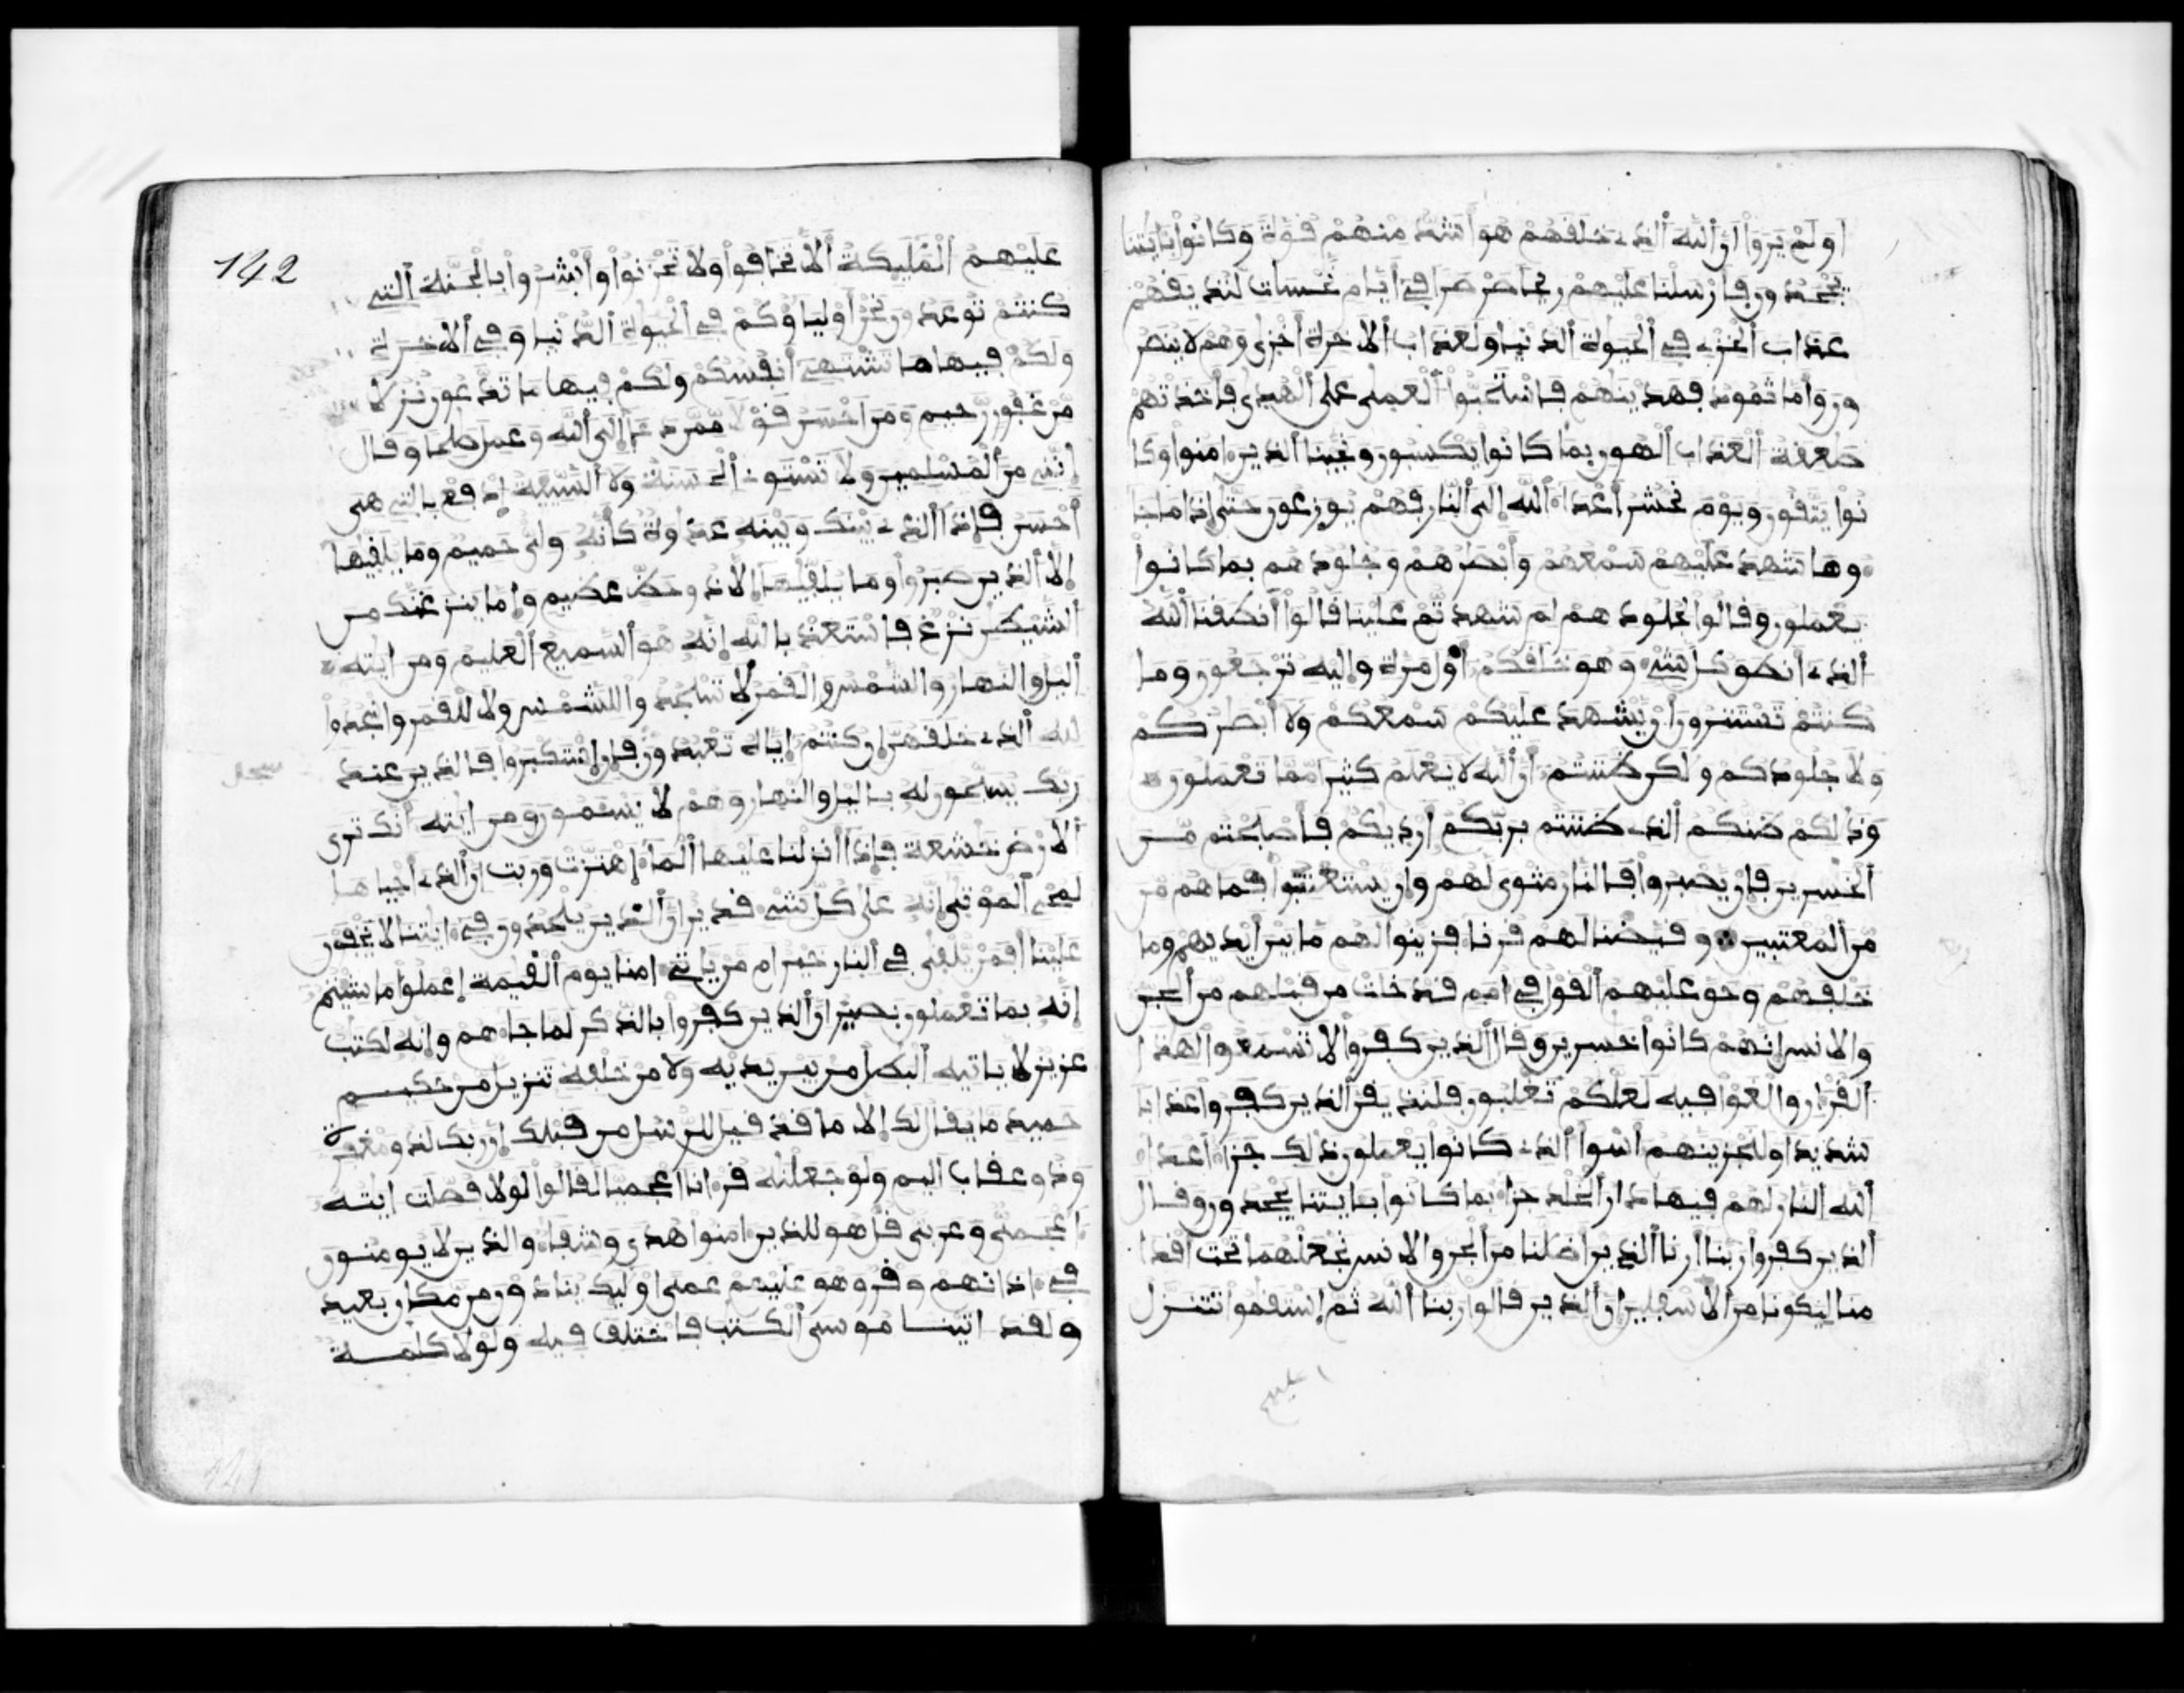 اولم يروا ان الله الذي خلفهم هو اشد منهم فوة وكانوا بايتنا
يجحدون فارسلنا عليهم ريحا صرصرا في ايام نحسات لنذيفهم
عذاب الخزي في الحيوة الدنيا ولعذاب الاخرة اخزى وهم لا ينصر
ون واما ثمود فهدينهم فاستحبوا العمى على الهدى فاخذتهم
صعفة العذاب الهون بما كانوا يكسبون ونجينا الذين امنوا وكا
نوا يتفون ويوم نحشر اعداء الله الى النار فهم يوزعون حتى اذا ما جا
وها شهد عليهم سمعهم وابصرهم وجلودهم بما كانوا
يعملون وفالوا لجلودهم لم شهدتم علينا فالوا انطفنا الله
الذي انطو كل شيء وهو خلفكم اول مرة واليه ترجعون وما
كنتم تستترون ان يشهد عليكم سمعكم ولا ابصركم
ولا جلودكم ولكن ظننتم ان الله لا يعلم كثيرا مما تعملون
وذلكم ظنكم الذي ظننتم بربكم ارديكم فاصبحتم من
الخسرين فان يصبروا فالنار مثوى لهم وان يستعتبوا فما هم من
من المعتبين وفيضنا لهم فرنا فزينوا لهم ما بين ايديهم وما
خلفهم وحو عليهم الفول في امم فد خلت من فبلهم من الجن
والانس انهم كانوا خسرين وفال الذين كفروا لا تسمعوا لهذا
الفران والغوا فيه لعلكم تغلبون فلنذيفن الذين كفروا عذابا
شديدا ولنجزينهم اسوا الذي كانوا يعملون ذلك جزاء اعداء
الله النار لهم فيها دار الخلد جزاء بما كانوا بايتنا يجحدون وفال
الذين كفروا ربنا ارنا الذين اضلنا من الجن والانس نجعلهما تحت افدا
منا ليكونا من الاسفلين ان الذين فالوا ربنا الله ثم استفموا تتنزل
عليهم
142
عليهم المليكة الا تخافوا ولا تحزنوا وابشروا بالجنة التي
كنتم توعدون نحن اولياؤكم في الحيوة الدنيا وفي الاخرة
ولكم فيها ما تشتهي انفسكم ولكم فيها ما تدعون نزلا
من غفور رحيم ومن احسن فولا ممن دعا الى الله وعمل صلحا وفال
انني من المسلمين ولا تستوي الحسنة ولا السيية ادفع بالتي هي
احسن فاذا الذي بينك وبينه عداوة كانه ولي حميم وما يلفيها
الا الذين صبروا وما يلفيها الا ذو حظ عظيم واما ينزغنك من
الشيطن نزغ فاستعذ بالله انه هو السميع العليم ومن ايته
اليل والنهار والشمس والفمر لا تسجدوا للشمس ولا للفمر واسجدوا
لله الذي خلفهن ان كنتم اياه تعبدون فان استكبروا فالذين عند
ربك يسبحون له باليل والنهار وهم لا يسمون ومن ايته انك ترى
الارض خشعة فاذا انزلنا عليها الماء اهتزت وربت ان الذي احياها
لمحي الموتى انه على كل شيء فدير ان الذين يلحدون في ايتنا لا يخفون
علينا افمن يلفى في النار خير ام من ياتي امنا يوم الفيمة اعملوا ما شيتم
انه بما تعملون بصير ان الذين كفروا بالذكر لما جاهم وانه لكتب
عزيز لا ياتيه البطل من بين يديه ولا من خلفه تنزيل من حكيم
حميد ما يفال لك الا ما فد فيل للرسل من فبلك ان ربك لذو مغفرة
وذو عفاب اليم ولو جعلنه فرانا اعجميا لفالوا لولا فصلت ايته
اعجمي وعربي فل هو للذين امنوا هدى وشفاء والذين لا يومنون
في اذانهم وفر وهو عليهم عمى اوليك ينادون من مكان بعيد
ولفد اتينا موسى الكتب فاختلف فيه ولولا كلمة